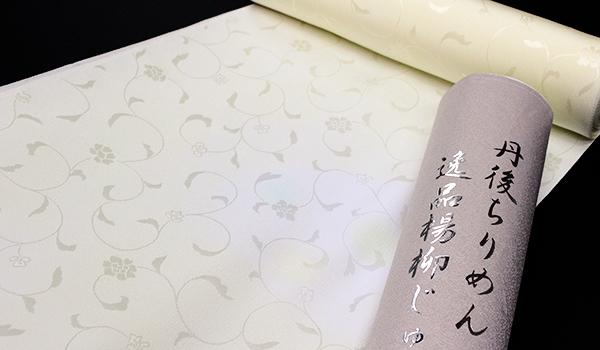 丹後ちりめん
逸品楊柳じゅ